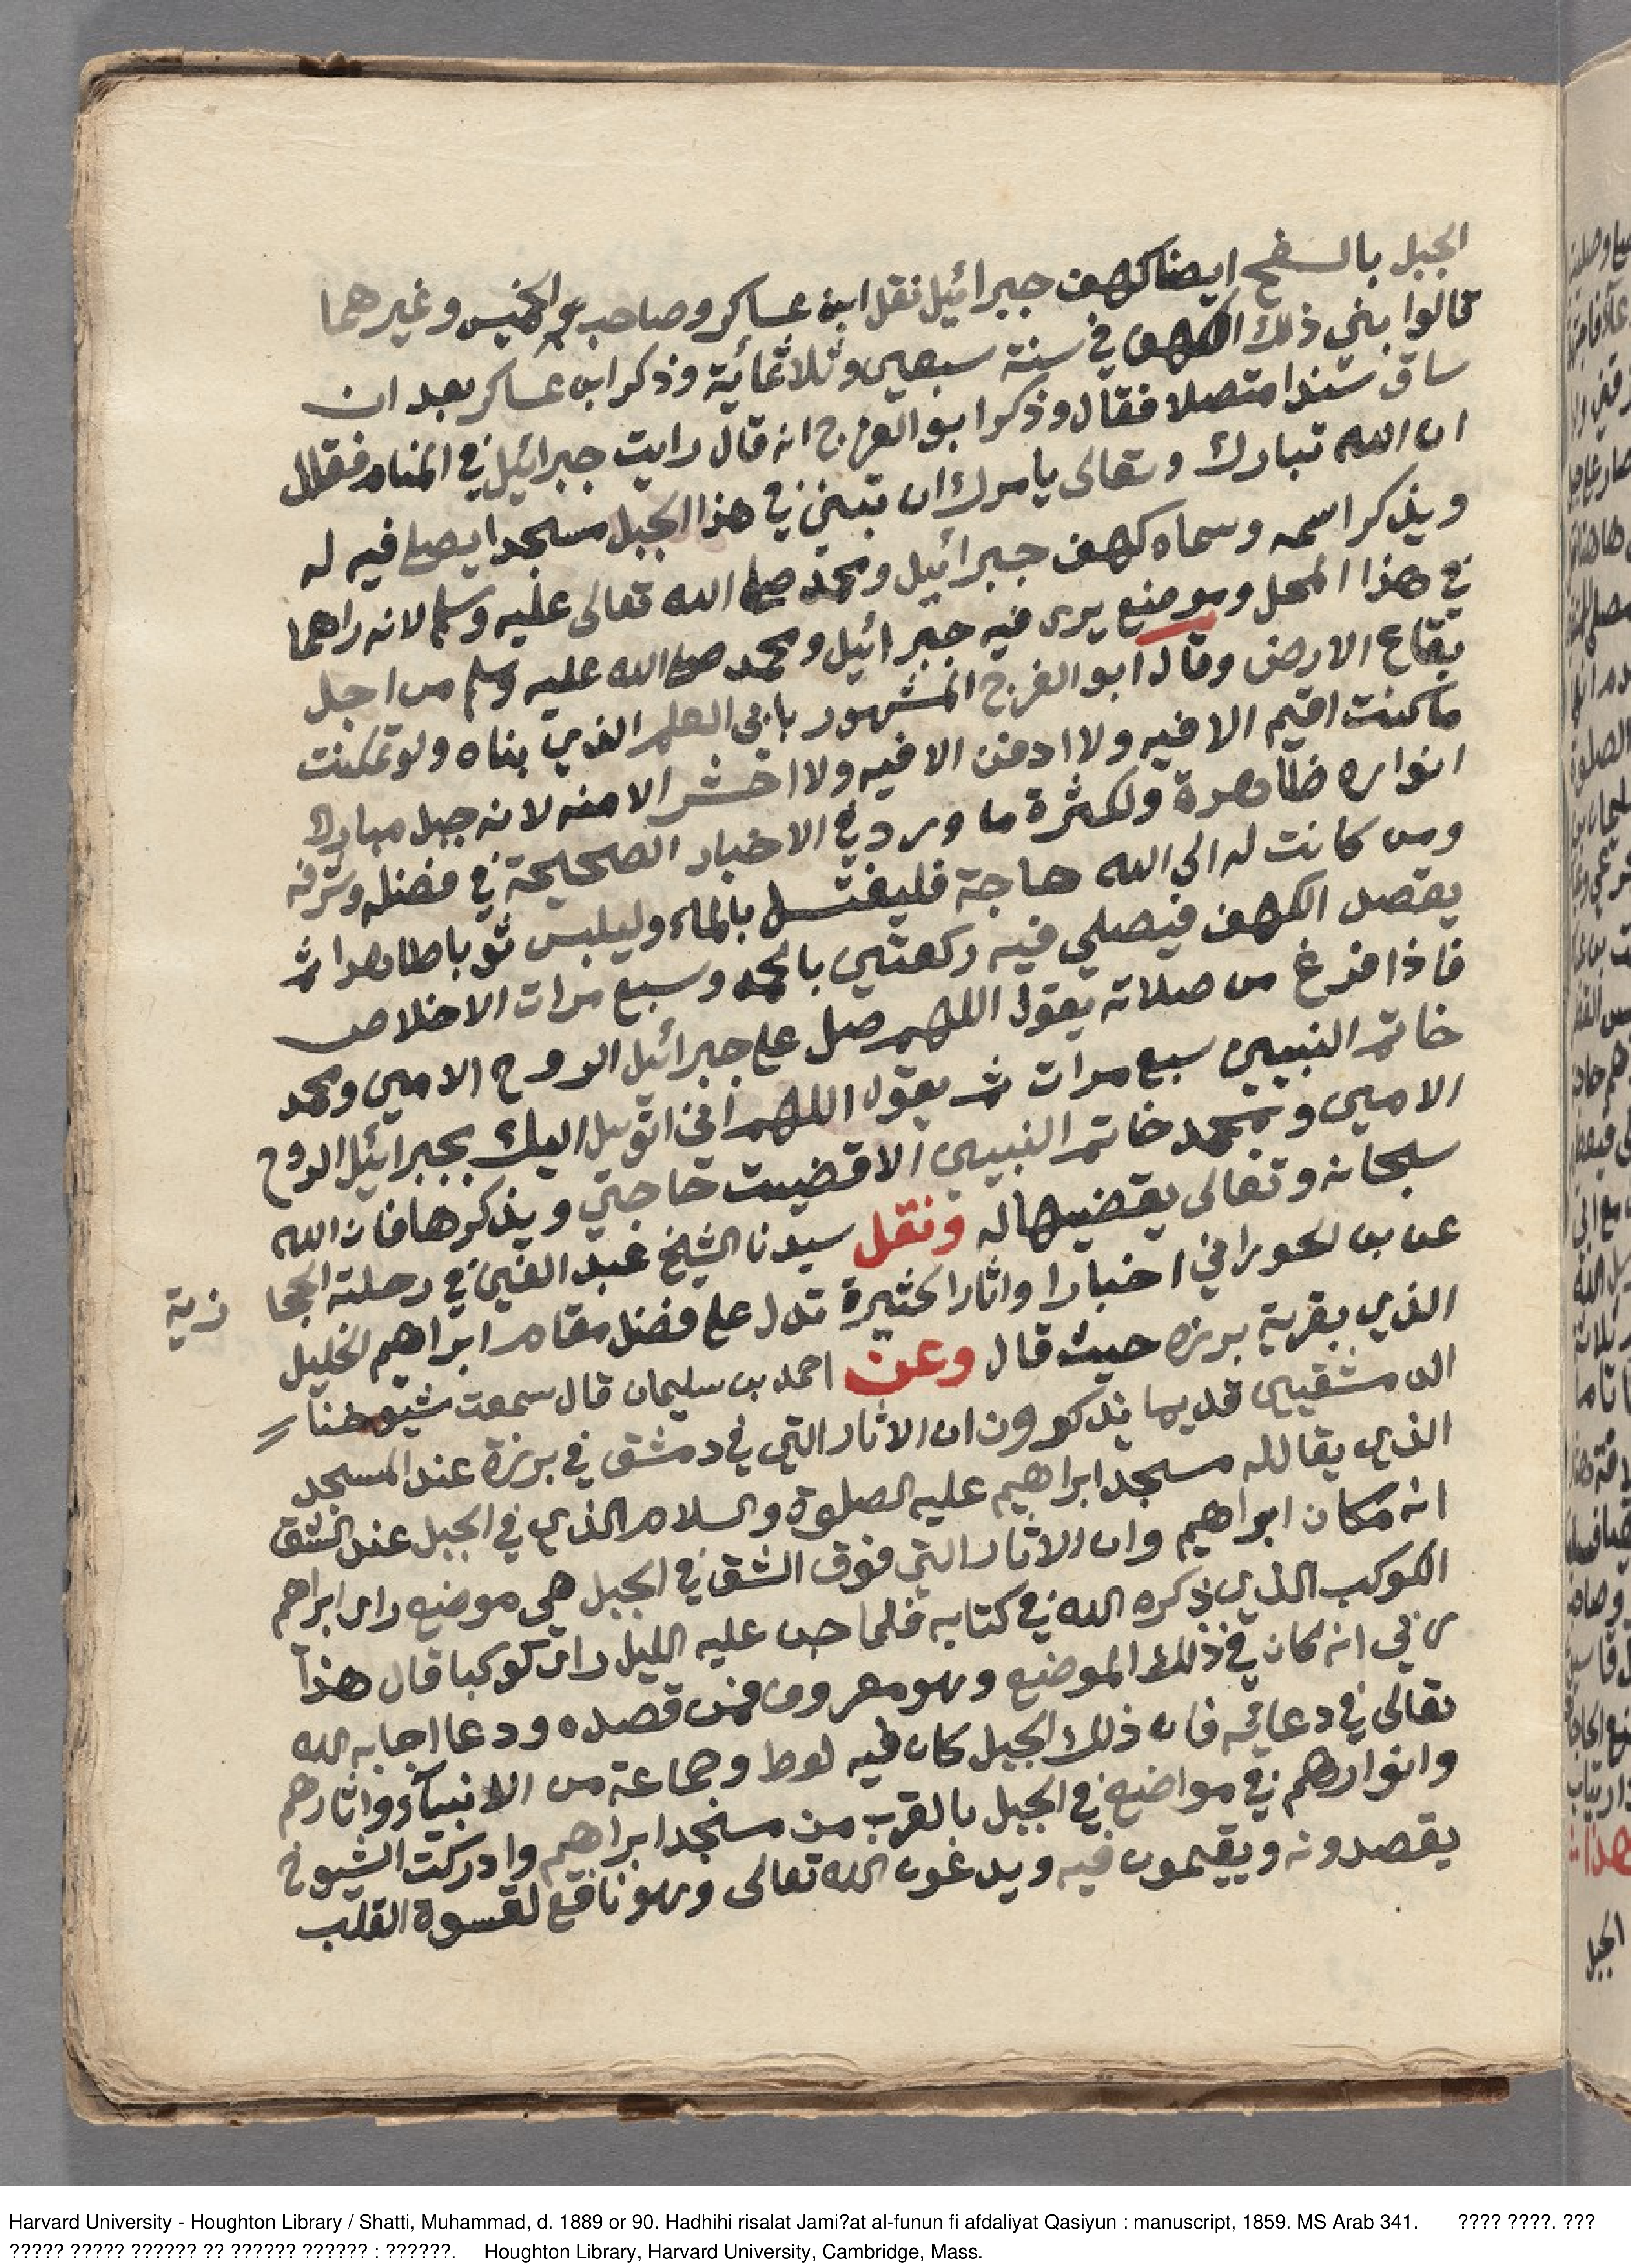 الجبل بالسفح ايضا كهف جبرائيل نقل ابن عساكر وصاحب الخميس وغيرهما
قالوا بني ذلك الكهف في سنة سبعين وثلاثمائة وذكر ابن عساكر بعد ان
ساق سندا متصلا فقال وذكر ابو الفرج انه قال رايت جبرائيل في المنام فقال
ان الله تبارك وتعالى يامرك ان تبني في هذا الجبل مسجدا يصلى فيه له
ويذكر اسمه وسماه كهف جبرائيل ومحمد صلى الله تعالى عليه وسلم لانه راهما
في هذا المحل وموضع يرى فيه جبرائيل ومحمد صلى الله عليه وسلم من اجل
بقاع الارض وقال ابو الفرج المشهور بابي العلم الذي بناه ولو تمكنت
ما كنت اقيم الا فيه ولا ادفن الا فيه ولا احشر الا منه لانه جبل مبارك
انواره ظاهرة ولكثرة ما ورد في الاخبار الصحيحة في فضله وشرفه
ومن كانت له الى الله حاجة فليغتسل بالماء وليلبس ثوبا طاهرا ثم
يقصد الكهف فيصلي فيه ركعتين بالحمد وسبع مرات الاخلاص
فاذا فرغ من صلاته يقول اللهم صل على جبرائيل الروح الامين ومحمد
خاتم النبيين سبع مرات ثم يقول اللهم اني اتوسل اليك بجبرائيل الروح
الامين وبمحمد خاتم النبيين الا قضيت حاجتي ويذكرها فان الله
سبحانه وتعالى يقضيها له ونقل سيدنا الشيخ عبد الغني في رحلته الحجا زية
عن بن الحوراني اخبارا واثارا كثيرة تدل على فضل مقام ابراهيم الخليل
الذي بقرية برزه حيث قال وعن احمد بن سليمان قال سمعت شيوخنا
الدمشقيين قديما يذكرون ان الاثار التي في دمشق في برزة عند المسجد
الذي يقال له مسجد ابراهيم عليه الصلوة والسلام الذي في الجبل عند الشق
انه مكان ابراهيم وان الاثار التي فوق الشق في الجبل هي موضع راى ابراهيم
الكوكب الذي ذكره الله في كتابه فلما جن عليه الليل راى كوكبا قال هذا
ربي انه كان في ذلك الموضع وهو معروف فمن قصده ودعا اجابه الله
تعالى في دعائه فان ذلك الجبل كان فيه لوط وجماعة من الانبيآء واثارهم
وانوارهم في مواضع في الجبل بالقرب من مسجد ابراهيم وادركت الشيوخ
يقصدونه ويقيمون فيه ويدعون الله تعالى وهو نافع لقسوة القلب
الجبل
Harvard University - Houghton Library / Shatti, Muhammad, d. 1889 or 90. Hadhihi risalat Jami?at al-funun fi afdaliyat Qasiyun : manuscript, 1859. MS Arab 341. ???? ????. ???
????? ????? ?????? ?? ?????? ?????? : ??????. Houghton Library, Harvard University, Cambridge, Mass.